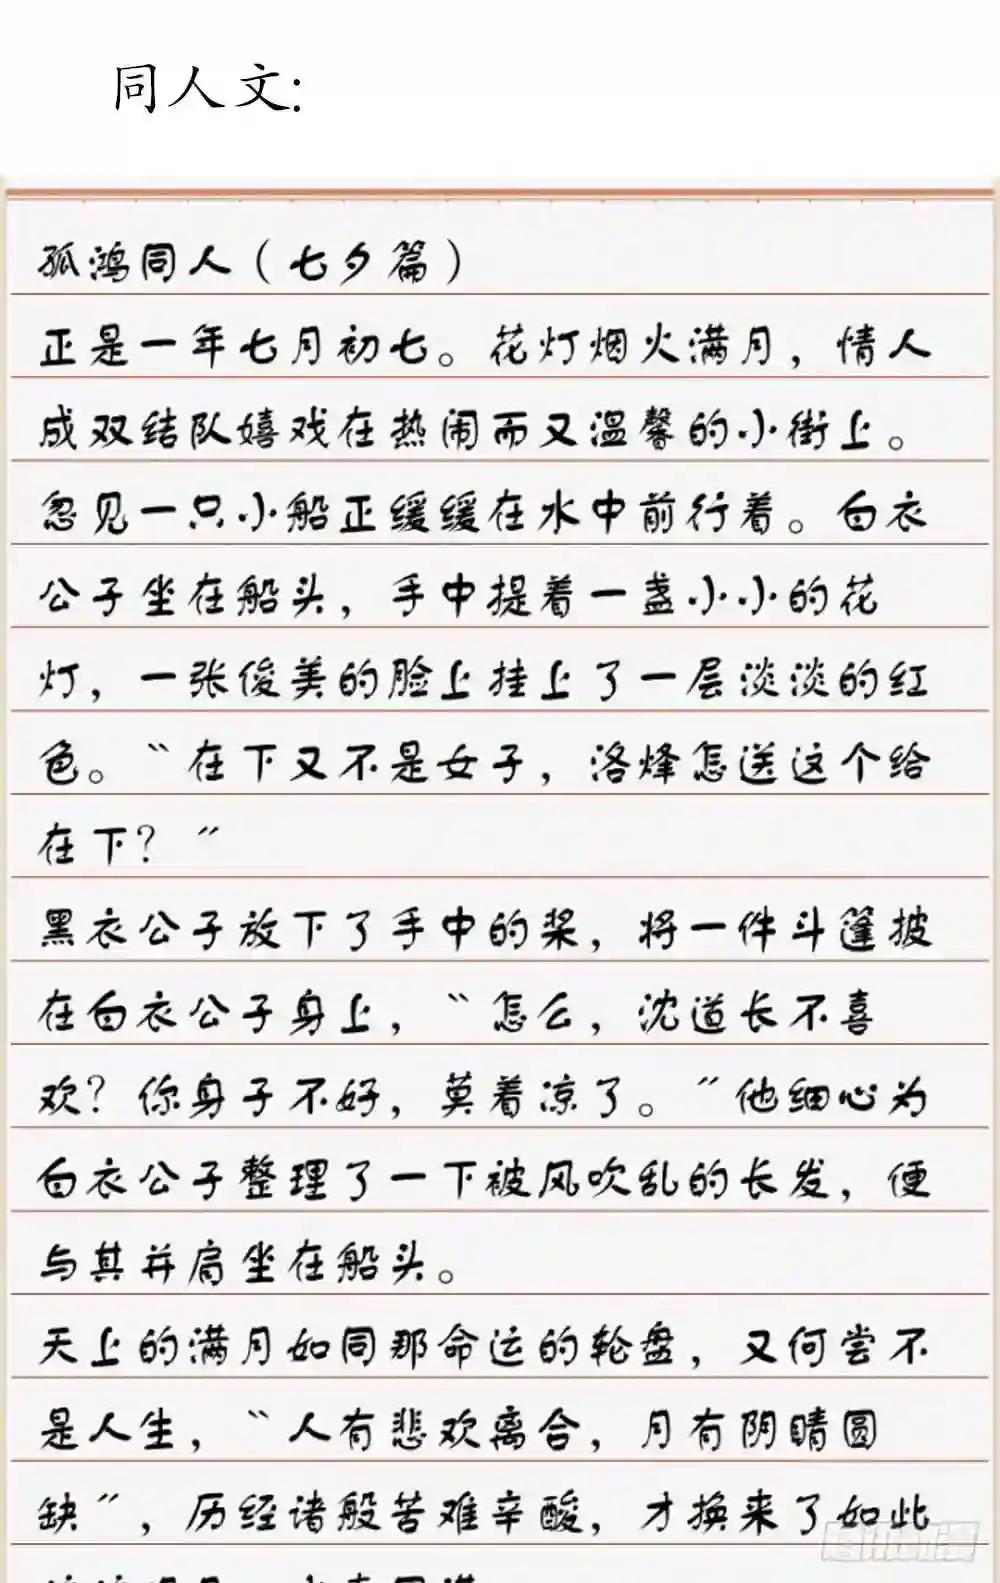 同人文:
孤鸿同人（七夕篇）
正是一年七月初七。花灯烟火满月，情人
成双结队嬉戏在热闹而又温馨的小街上。
忽见一只小船正缓缓在水中前行着。白衣
公子坐在船头，手中提着一盏小小的花
灯，一张俊美的脸上挂上了一层淡淡的红
色。“在下又不是女子，洛烽怎送这个给
在下？”
黑衣公子放下了手中的桨，将一件斗篷披
在白衣公子身上，“怎么，沈道长不喜
欢？你身子不好，莫着凉了。”他细心为
白衣公子整理了一下被风吹乱的长发，便
与其并肩坐在船头。
天上的满月如同那命运的轮盘，又何尝不
是人生，“人有悲欢离合，月有阴晴圆
缺”，历经诸般苦难辛酸，才换来了如此